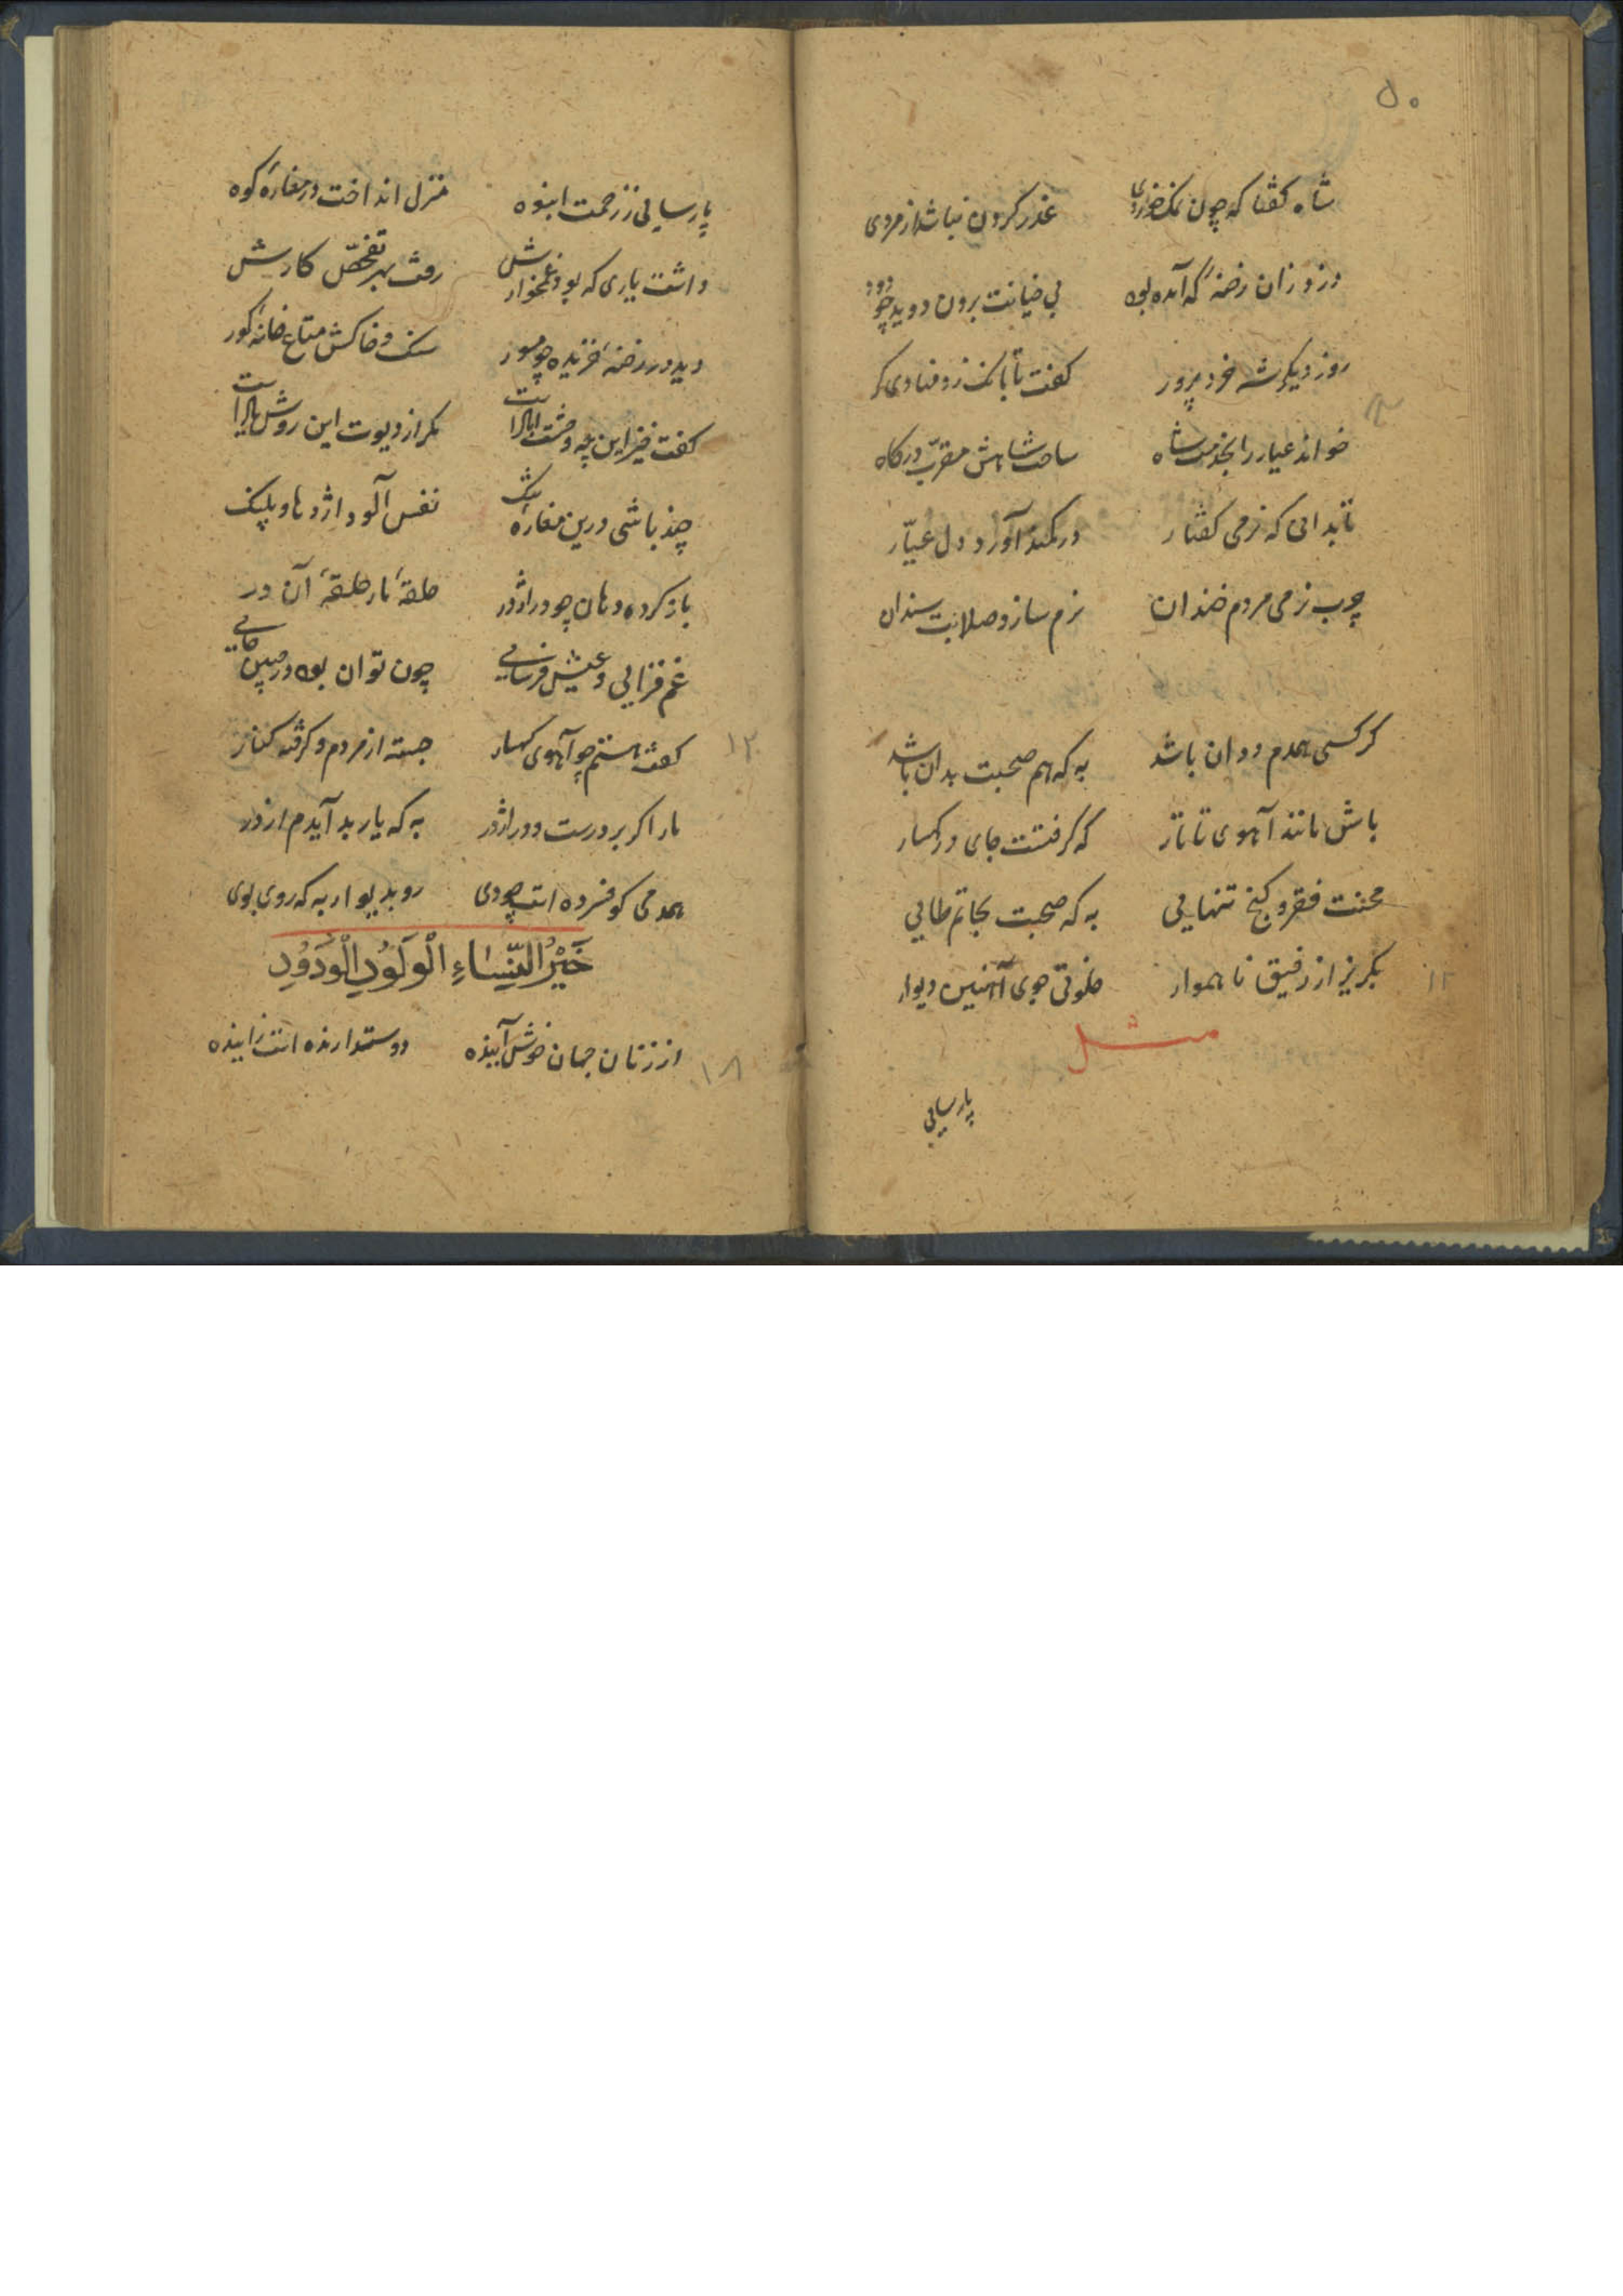 ۵۰
شاه کفتا که چون نمک خوردی غدر کردن نباشد از مردی
دزد زان رخنهٔ که آمده بود بی خیانت برون دوید چو دود
روز دیکر شه خرد پرور کفت تا بانک زد منادی کر
خواند عیار را بخدمت شاه ساخت شاهش مقرّب درکاه
تا بدانی که نرمی کفتار در کمند آورد دل عیّار
چرب نرمی مردم خندان نرم سازد صلابت سندان
کر کسی همدم ددان باشد به که هم صحبت بدان باشد
باش مانند آهوی تاتار که کرفتست جای در کهسار
محنت فقر و کنج تنهایی به که صحبت بحاتم طایی
بکریز از رفیق ناهموار خلوتی جوی آهنین دیوار
مثل
پارسایی
پارسایی ز زحمت انبوه منزل انداخت در مغارهٔ کوه
داشت یاری که بود غمخوارش رفت بهر تفحّص کارش
دید در رخنهٔ خزیده چو مور سنک و خاکش متاع خانهٔ کور
کفت خیز این چه وحشت ابالاست مکر از دیوت این روش بالاست
چند باشی درین مغارهٔ تنک نفس آلود اژدها و پلنک
باز کرده دهان چو در اژدر حلقهٔ مار حلقهٔ آن در
غم فزایی و عیش فرسایی چون توان بود در چنین جایی
۱۲
کفت هستم چو آهوی کهسار جسته از مردم و کرفته کنار
مار اکر بر درست و در اژدر به که یار بد آیدم از در
همدمی کو فسرده است چو دی رو بدیوار به که روی بوی
خَيْرُ النِّسَاءِ الْوَلُودِ الْوَدُودِ
از زنان جهان خوش آینده دوستدارنده است زاینده
۱۸